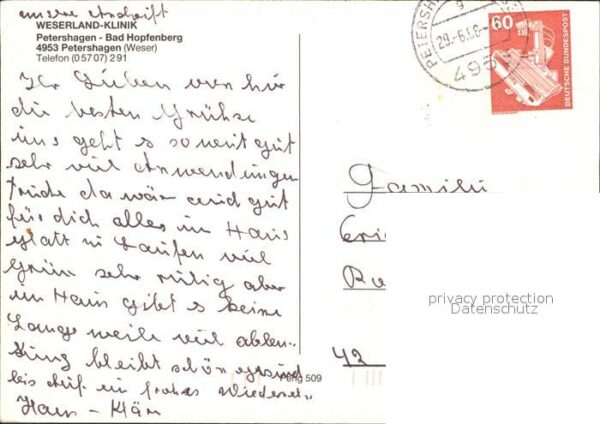 unsere Anschrift
WESERLAND-KLINIK
Petershagen - Bad Hopfenberg
4953 Petershagen (Weser)
Telefon (05707) 291
Ihr Lieben von hir
die besten Grühse
uns geht es so weit gut
sehr viel Anwendungen
Friede da wär auch gut
für dich alles im Haus
glatt zu Laufen viel
Grün sehr ruhig aber
im Haus gibt es keine
Lange weile viel ablen-
kung bleibt schön gesund
bis auf ein frohes Wiederseh-
Hans - Klär
Peng 509
PETERSH
9
29.-6.88
4953
60
DEUTSCHE BUNDESPOST
Familie
Eri
Ra
42
privacy protection
Datenschutz